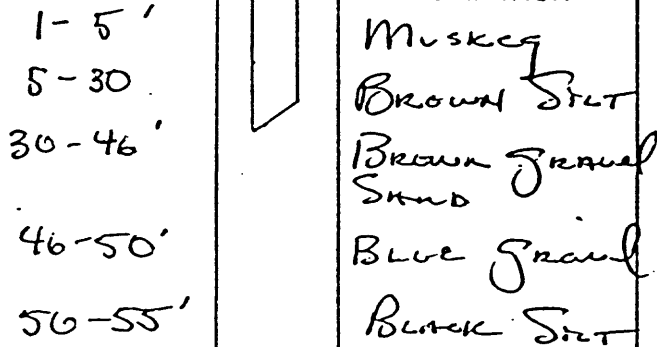 1-5' Muskeg
5-30 Brown Silt
30-46' Brown Gravel
Sand
46-50' Blue Gravel
50-55' Black Silt